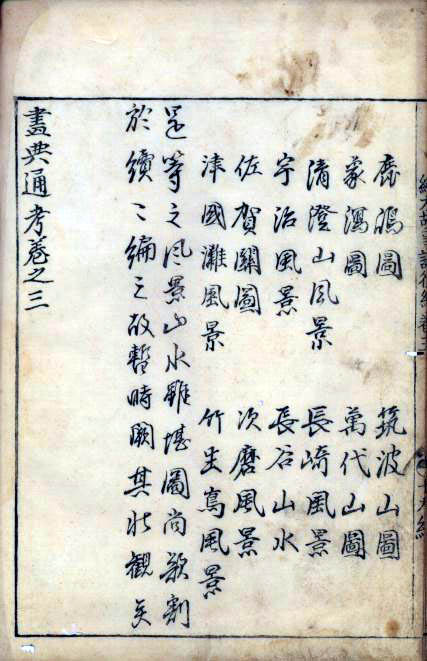 鹿嶋圖　筑波山圖
象潟圖　萬代山圖
清澄山風景　長崎風景
宇治風景　長谷山水
佐賀關圖　次磨風景
津國灘風景　竹生嶌風景
是等之風景山水雖堪圖尚欲割
於續〻編之故暫時闕其壮觀矣
畫典通考卷之三